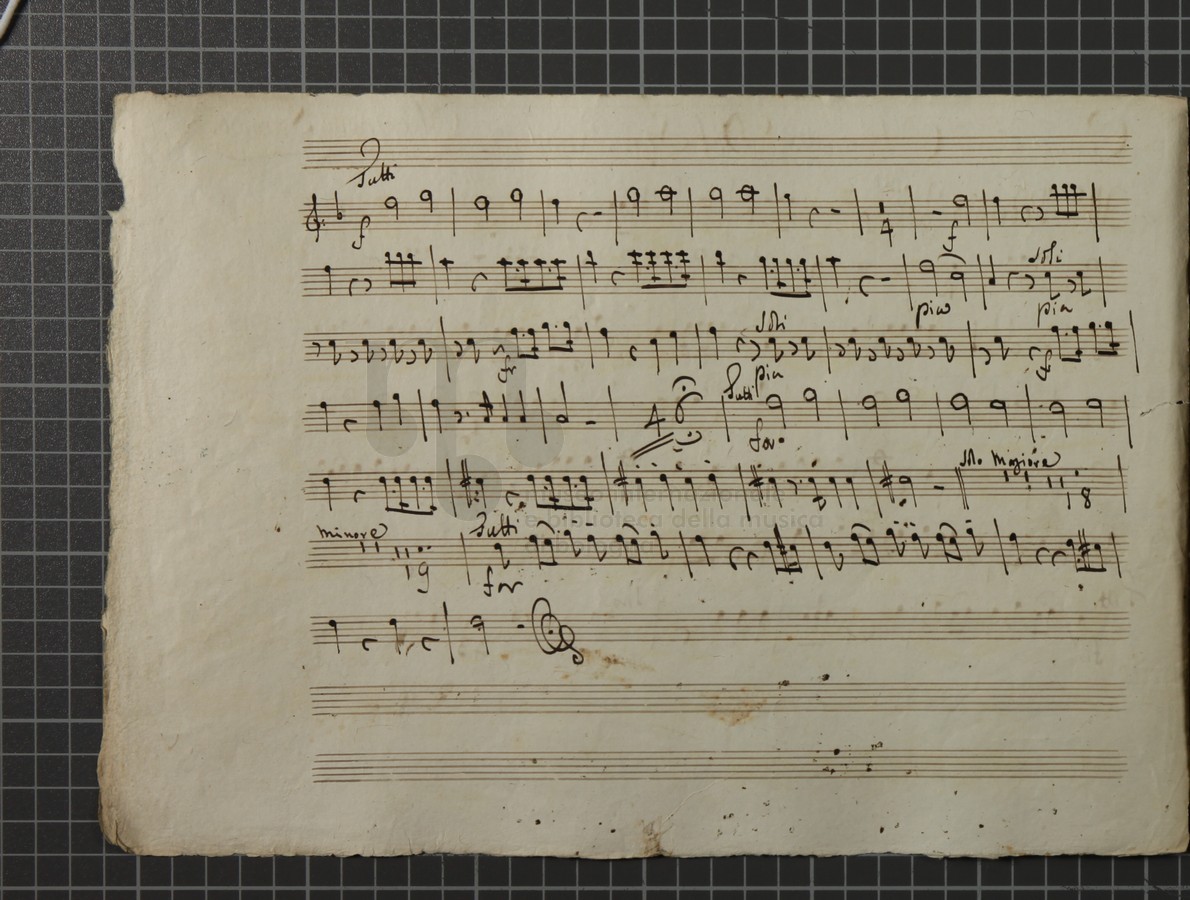 Tutti
f
4
f
soli
pia
pia
soli
fr
pia
f
Tutti
4
for.
Solo Magiore
18
minore
Tutti
19
for
e biblioteca della musica